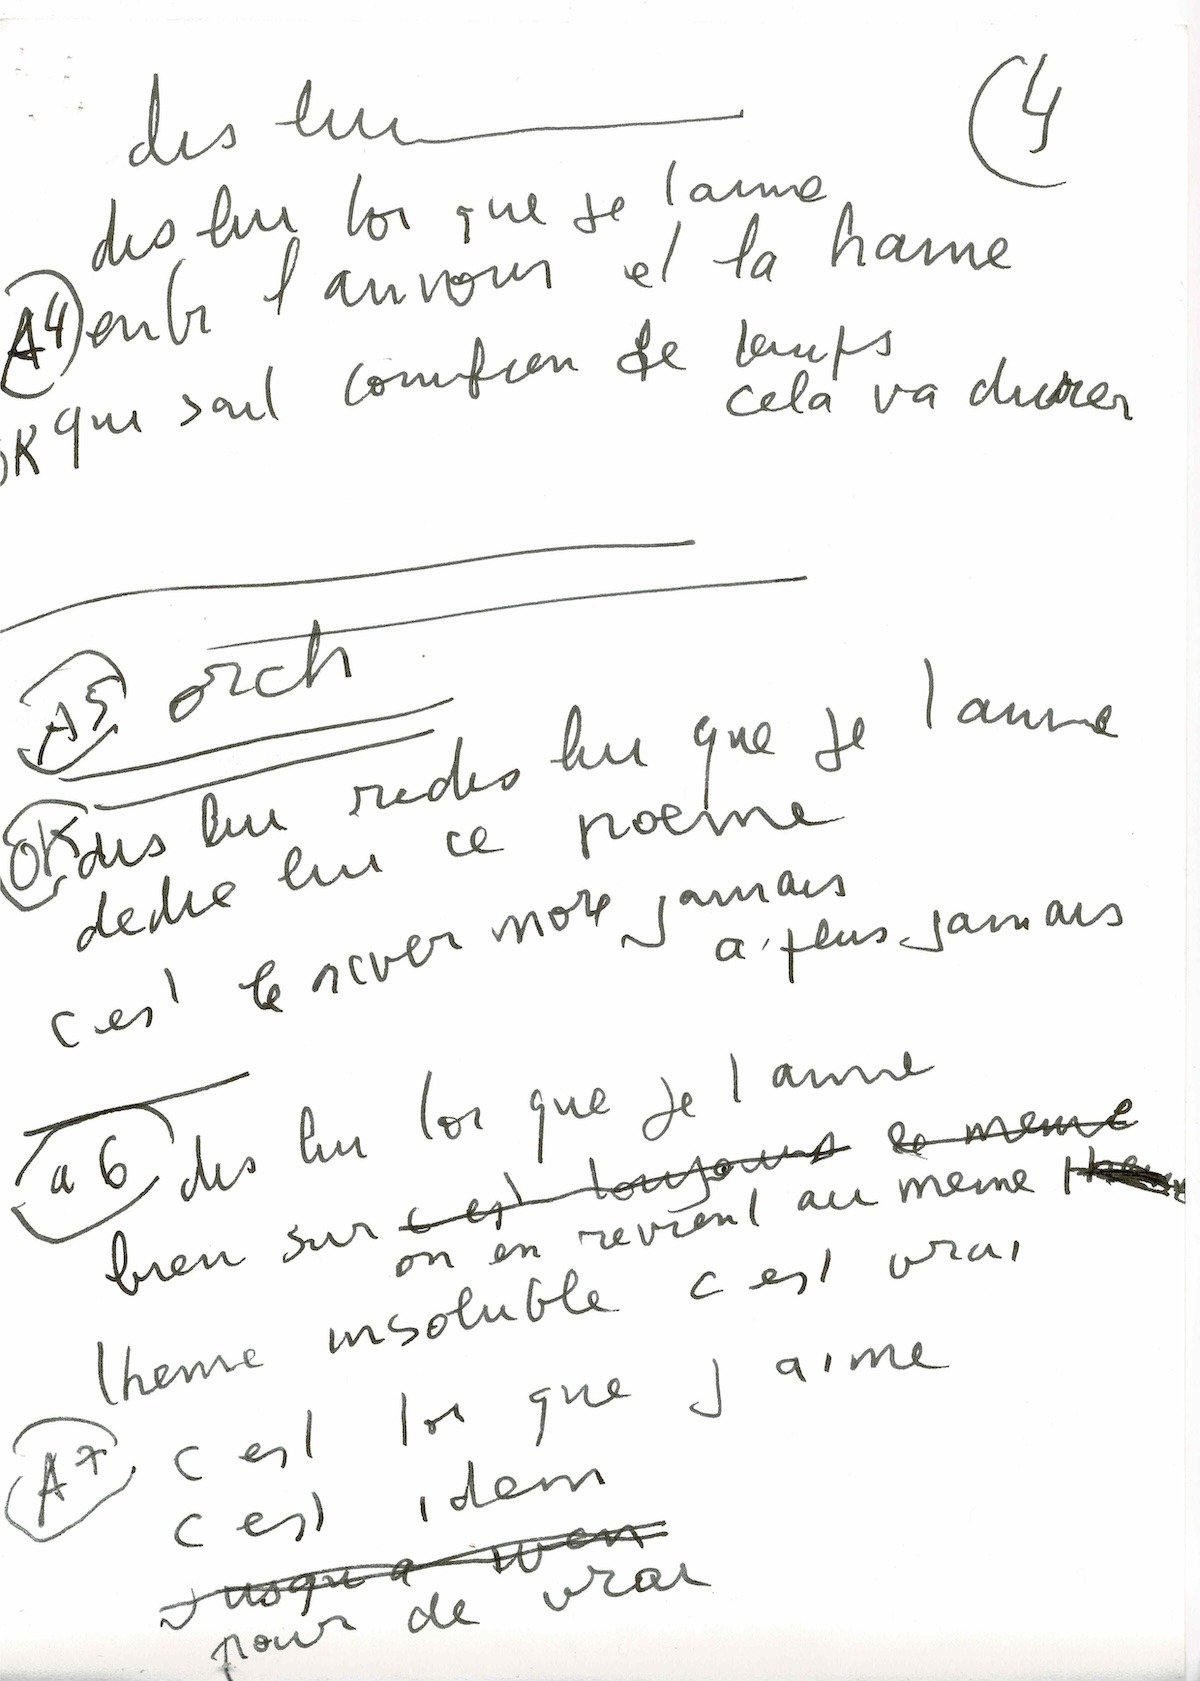 dis lui
4
dis lui toi que je l aime
A4 entre l amour et la haine
OK qui sait combien de temps
cela va durer
A5 orch
OK dis lui redis lui que je l aime
dedie lui ce poeme
c est le never more jamais
a plus jamais
a6 dis lui toi que je l aime
bien sur c est toujours le meme
on en revient au meme
theme insoluble c est vrai
A7 c est toi que j aime
c est idem
jusqu a
pour de vrai